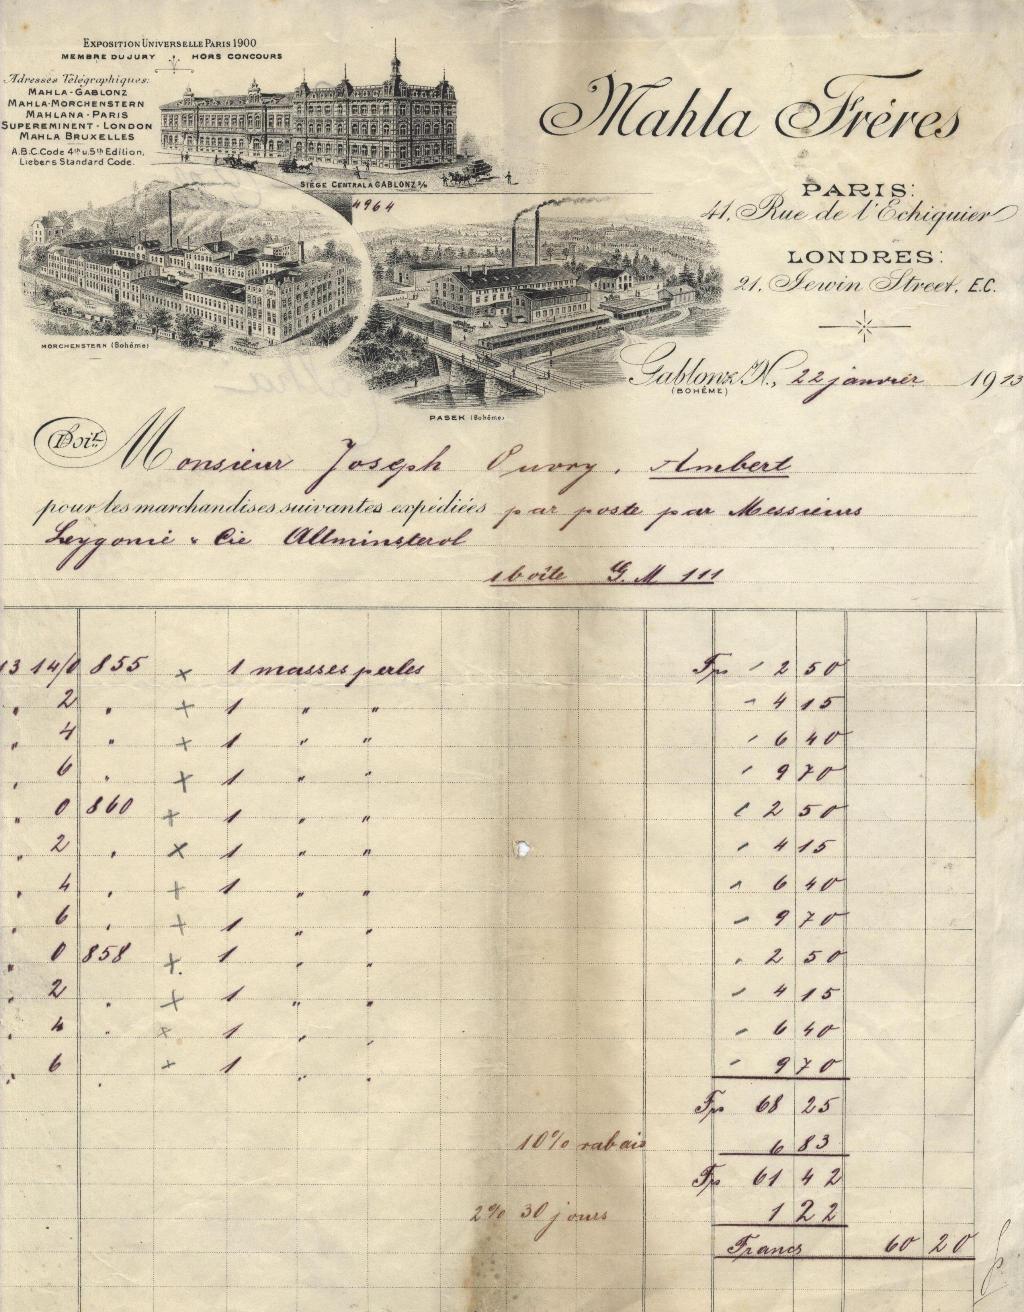 EXPOSITION UNIVERSELLE PARIS 1900
MEMBRE DU JURY HORS CONCOURS
Adresses Télégraphiques:
MAHLA-GABLONZ
MAHLA-MORCHENSTERN
MAHLANA-PARIS
SUPEREMINENT-LONDON
MAHLA BRUXELLES
A.B.C. Code 4th u. 5th Edition.
Liebers Standard Code.
SIÈGE CENTRAL A GABLONZ a/N
4964
MORCHENSTERN (Bohême)
PASEK (Bohême)
Mahla Fréres
PARIS:
41, Rue de l'Echiquier
LONDRES:
21, Jewin Street, E.C.
Gablonz a/N., 22 janvier 1913
(BOHÊME)
Doit Monsieur Joseph Ouvry, Ambert
pour les marchandises suivantes expédiées par poste par Messieurs
Leygonie & Cie Allminsterol
1 boîte G.M 111
13 14/0 855 × 1 masses perles Frs 2 50
" 2 " × 1 " " 4 15
" 4 " × 1 " " 6 40
" 6 " × 1 " " 9 70
" 0 860 × 1 " " 2 50
" 2 " × 1 " " 4 15
" 4 " × 1 " " 6 40
" 6 " × 1 " " 9 70
" 0 858 × 1 " " 2 50
" 2 " × 1 " " 4 15
" 4 " × 1 " " 6 40
" 6 " × 1 " " 9 70
Frs 68 25
10% rabais 6 83
Frs 61 42
2% 30 jours 1 22
Francs 60 20